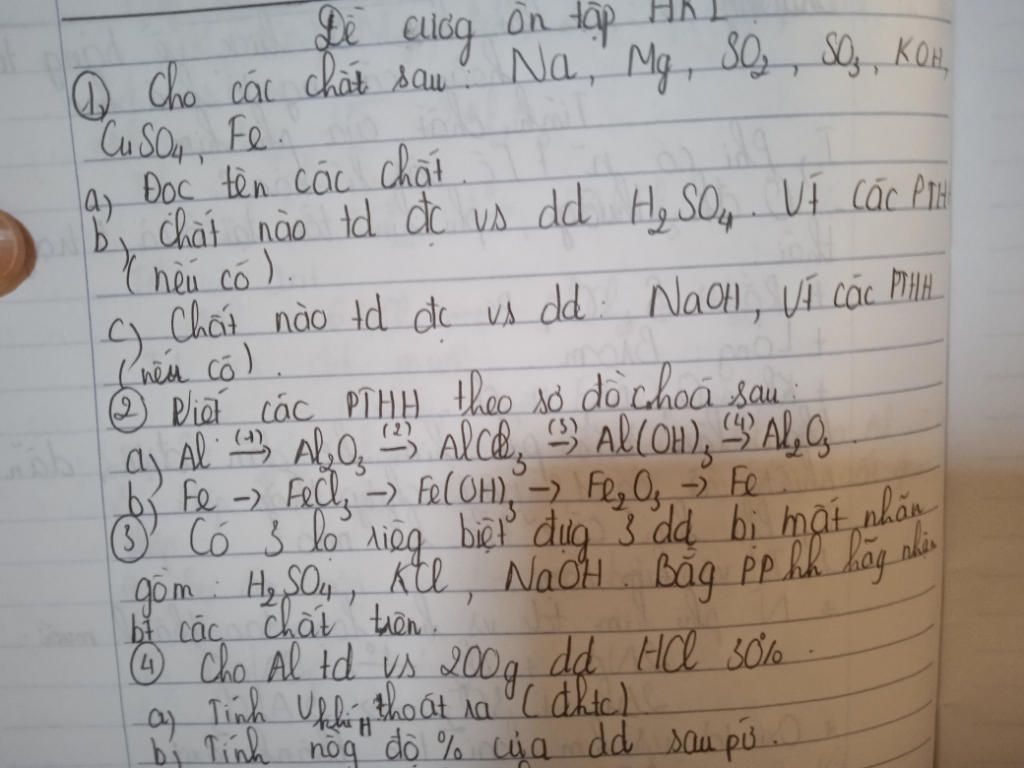 Đề cươg ôn tập HKI
① Cho các chất sau: Na, Mg, SO₂, SO₃, KOH,
CuSO₄, Fe.
a) Đọc tên các chất.
b) Chất nào td đc vs dd H₂SO₄. Vt các PTH
(nếu có).
c) Chất nào td đc vs dd: NaOH, Vt các PTHH
(nếu có).
② Viết các PTHH theo sơ đồ choã sau:
a) Al (1)→ Al₂O₃ (2)→ AlCl₃ (3)→ Al(OH)₃ (4)→ Al₂O₃.
b) Fe → FeCl₃ → Fe(OH)₃ → Fe₂O₃ → Fe.
③ Có 3 lọ riêg biệt đựg 3 dd bị mất nhãn
gồm: H₂SO₄, KCl, NaOH. Bằg PP hh hãg nhận
bt các chất trên.
④ Cho Al td vs 200g dd HCl 30%.
a) Tính V khí H thoát ra (đktc)
b) Tính nồg độ % của dd sau pứ.